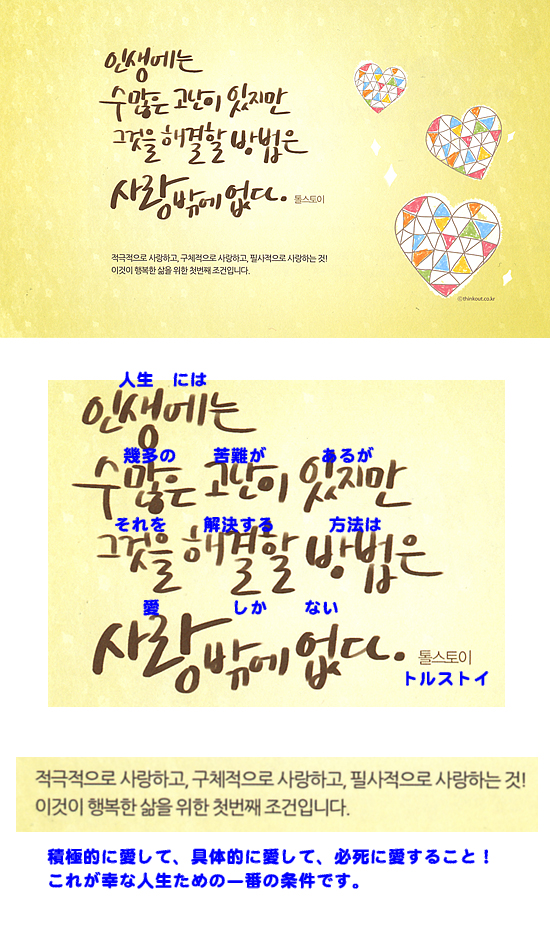 인생에는
수많은 고난이 있지만
그것을 해결할 방법은
사랑밖에 없다. 톨스토이
적극적으로 사랑하고, 구체적으로 사랑하고, 필사적으로 사랑하는 것!
이것이 행복한 삶을 위한 첫번째 조건입니다.
ⓒthinkout.co.kr
人生 には
인생에는
幾多の 苦難が あるが
수많은 고난이 있지만
それを 解決する 方法は
그것을 해결할 방법은
愛 しか ない
사랑밖에 없다. 톨스토이
トルストイ
적극적으로 사랑하고, 구체적으로 사랑하고, 필사적으로 사랑하는 것!
이것이 행복한 삶을 위한 첫번째 조건입니다.
積極的に愛して、具体的に愛して、必死に愛すること！
これが幸な人生ための一番の条件です。